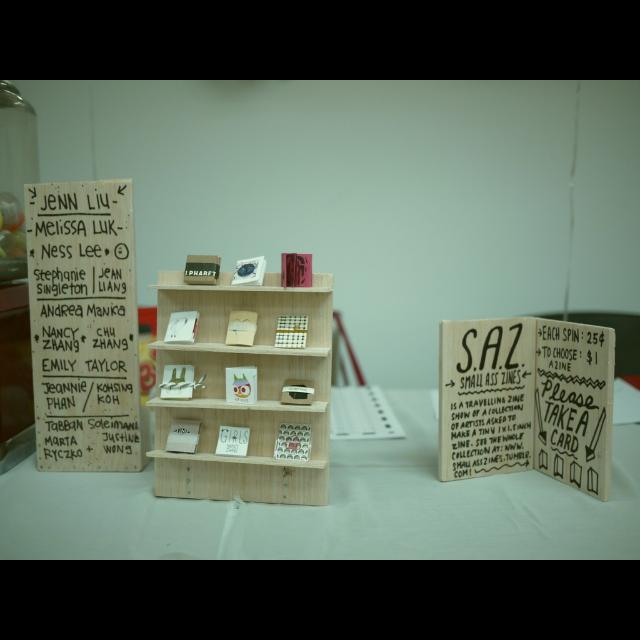 JENN LIU
MELISSA LUK
NESS LEE
Stephanie Singleton / JEAN LIANG
ANDREA MANICA
NANCY ZHANG CHI ZHANG
EMILY TAYLOR
JEANNIE PHAN / KOH
TARBAN
MARTA RYCZKO + JUSTINE WONG
GIRLS
S.A.Z
SMALL ASS ZINES
IS A TRAVELLING ZINE
SHOW BY A COLLECTION
OF ARTISTS ASKED TO
MAKE A TINY 1 IN. X INCH
ZINE. SEE THE WHOLE
COLLECTION AT: WWW.
SMALL ASS ZINES.TUMBLR.
EACH SPIN: 25¢
TO CHOOSE: $1
A ZINE
Please
TAKE A
CARD